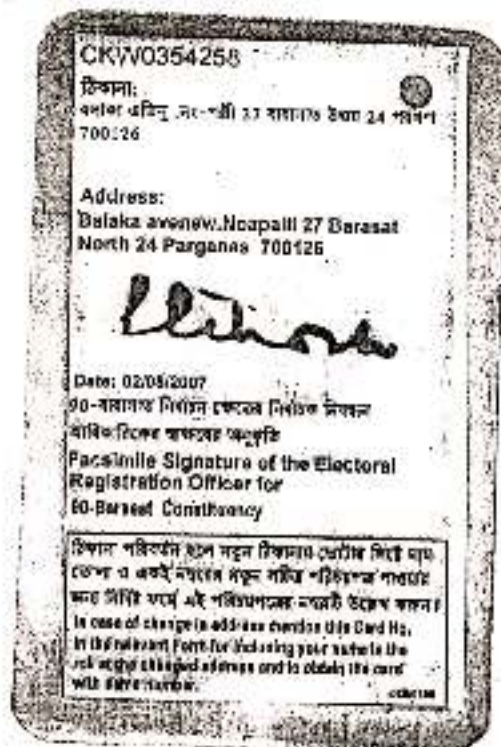 CKW0354258
ঠিকানা:
27 বারাসাত উত্তর 24 পরগণা
700126
Address:
Balaka avenew,Noapalli 27 Barasat
North 24 Parganas 700126
Date: 02/08/2007
90-বারাসাত নির্বাচন ক্ষেত্রের নির্বাচক নিবন্ধন
আধিকারিকের স্বাক্ষরের অনুকৃতি
Facsimile Signature of the Electoral
Registration Officer for
90-Barasat Constituency
ঠিকানা পরিবর্তন হলে নতুন ঠিকানায় ভোটার লিস্টে নাম
তোলা ও একই নম্বরের নতুন সচিত্র পরিচয়পত্র পাওয়ার
জন্য নির্দিষ্ট ফর্মে এই পরিচয়পত্রের নম্বরটি উল্লেখ করুন।
In case of change in address mention this Card No.
in the relevant Form for including your name in the
roll at the changed address and to obtain the card
with same number.